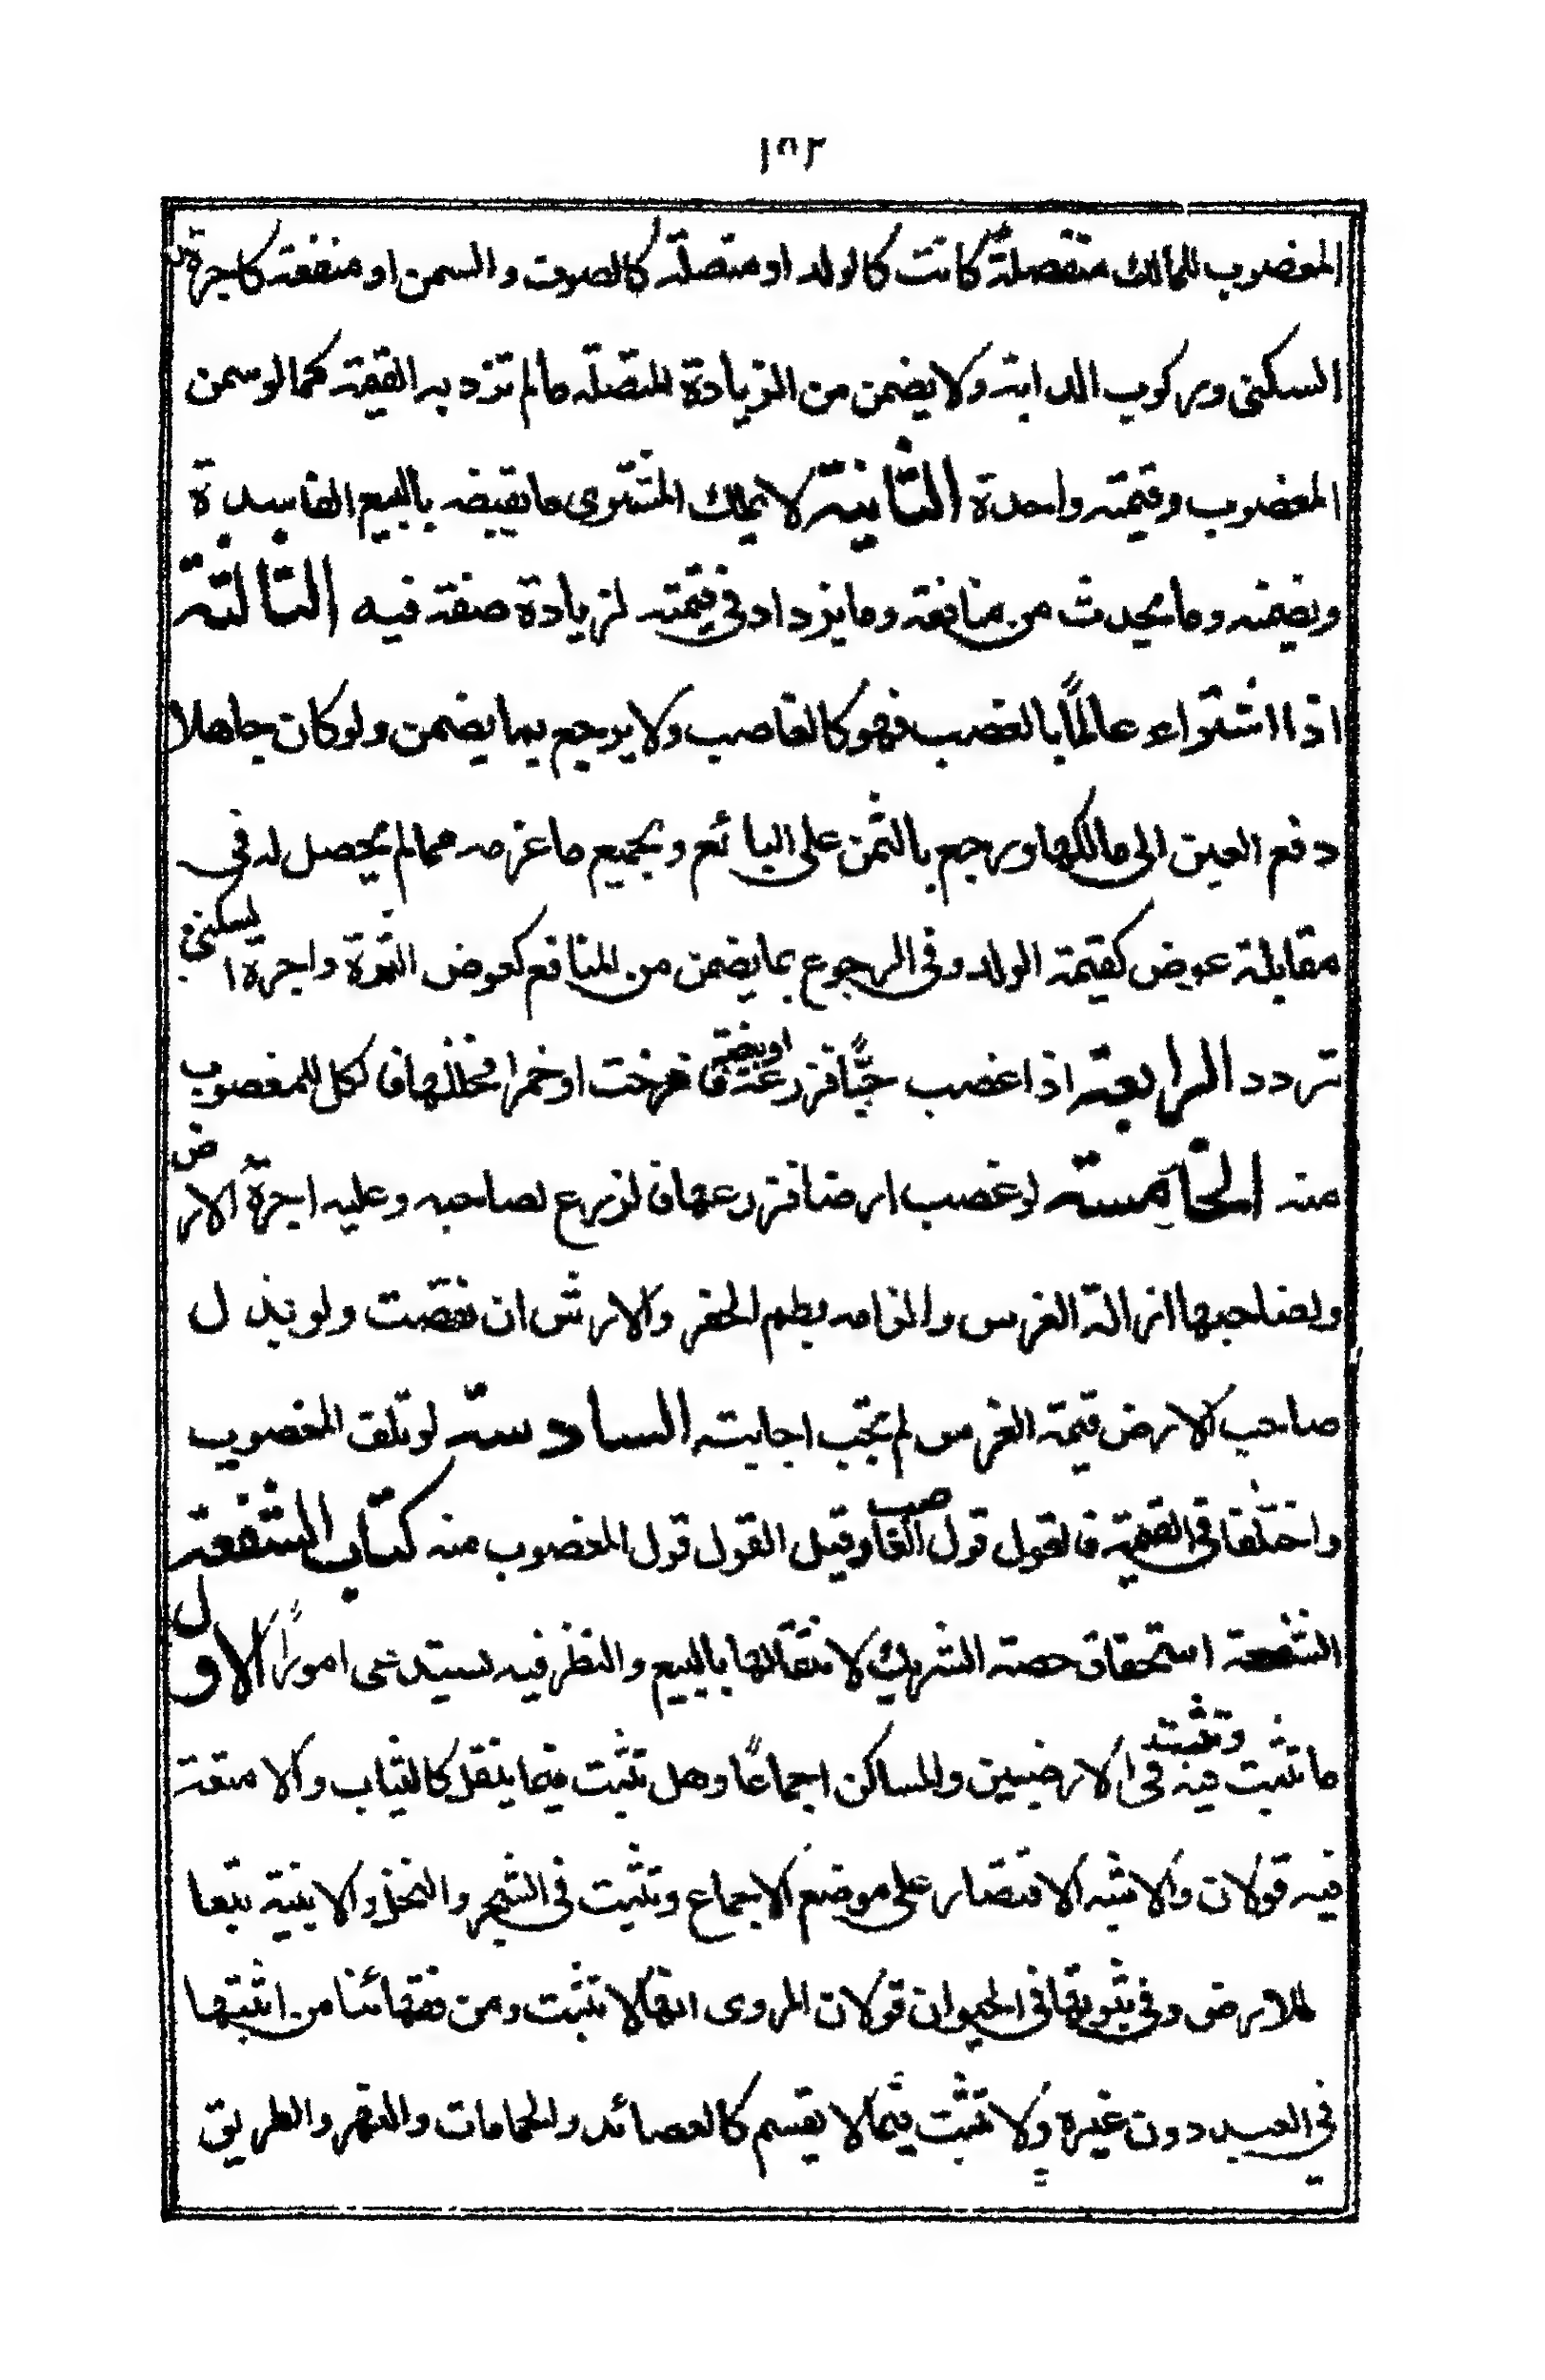 ١٥٢
المغضوب للمالك متفصلة كانت كالولد او متصلة كالصوف والسمن او منفعة كاجرة
السكنى وركوب الدابة ولا يضمن من الزيادة المتصلة مالم تزد به القيمة كما لو سمن
المغصوب وقيمته واحدة الثانية لا يملك المشترى ما يقبضه بالبيع الفاسد ة
ويضمنه وما يحدث من منافعه وما يزداد في قيمته لزيادة صفة فيه الثالثة
اذا اشتراه عالمًا بالغصب فهو كالغاصب ولا يرجع بما يضمن ولو كان جاهلا
دفع العين الى مالكها ويرجع بالثمن على البائع وبجميع ما غرمه ممالم يحصل له في
مقابلة عوض كقيمة الولد وفى الرجوع بما يضمن من المنافع كعوض الثمرة واجرة السكنى
تردد الرابعة اذا غصب حبًّا فزرعه او بيضة فافرخت او خمرا فخللها فالكل للمغصوب
منه الخامسة لو غصب ارضا فزرعها فالزرع لصاحبه وعليه اجرة الارض
ولصاحبها ازالة الغرس والزامه بطم الحفر والارش ان نقصت ولو بذل
صاحب الارض قيمة الغرس لم تجب اجابته السادسة لو تلف المغصوب
واختلفا في القيمة فالقول قول الغاصب وقيل القول قول المغصوب منه كتاب الشفعة
الشفعة استحقاق حصة الشريك لانتقالها بالبيع والنظر فيه يستدعى امورًا الاول
ما تثبت فيه وتثبت في الارضيين والمساكن اجماعًا وهل تثبت فيما ينقل كالثياب والامتعة
فيه قولان والاشبه الاقتصار على موضع الاجماع وتثبت في الشجر والنخل والابنية تبعا
للارض وفي ثبوتها في الحيوان قولان المروى انها لا تثبت ومن فقهائنا من اثبتها
في العبد دون غيره ولا تثبت فيما لا يقسم كالعصائد والحمامات والنهر والطريق